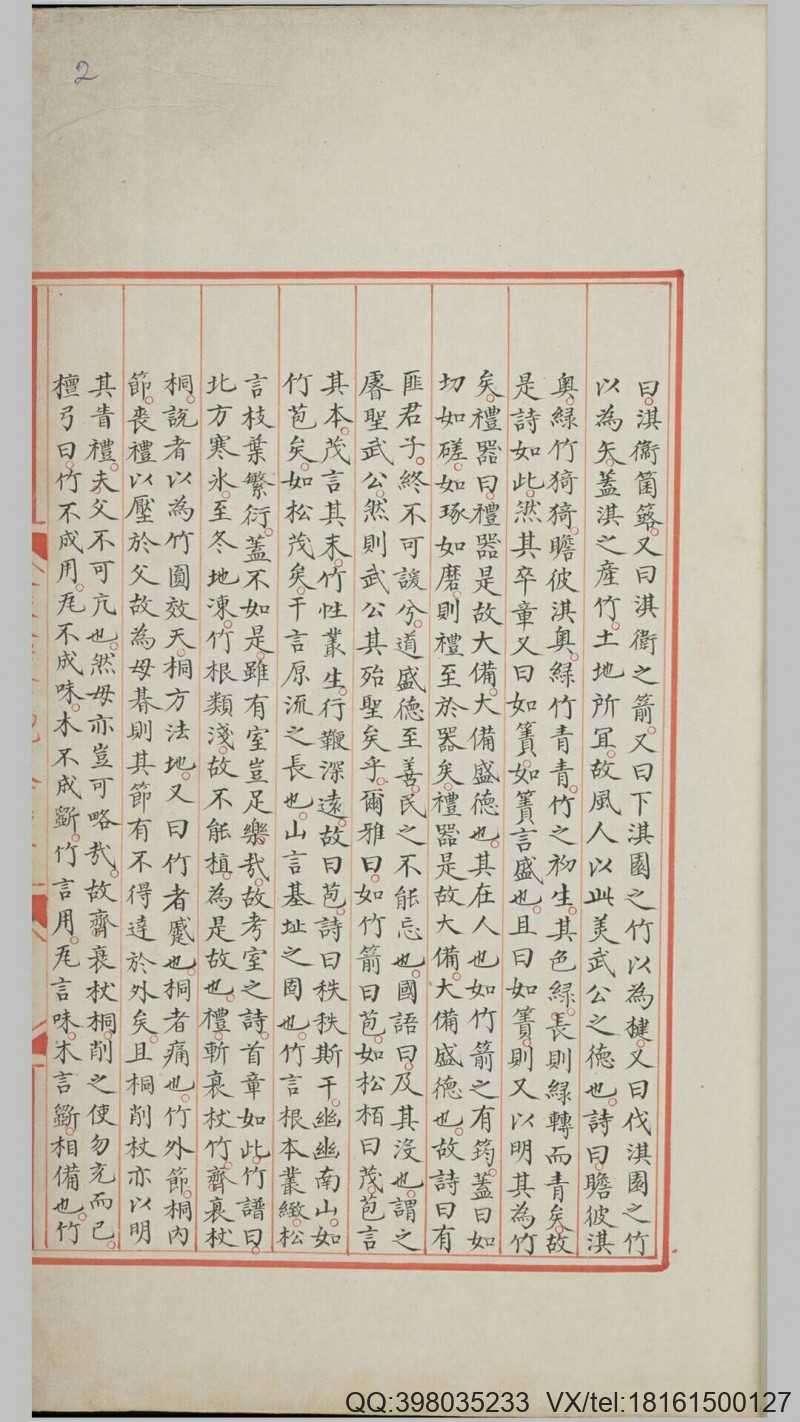 2
曰淇衞箘簬又曰淇衛之箭又曰下淇園之竹以為楗又曰伐淇園之竹
以為矢蓋淇之產竹土地所冝故風人以此美武公之德也詩曰瞻彼淇
奥綠竹猗猗瞻彼淇奥綠竹青青竹之初生其色綠長則綠轉而青矣故
是詩如此然其卒章又曰如簀如簀言盛也且曰如簀則又以明其為竹
矣禮器曰禮器是故大備大備盛德也其在人也如竹箭之有筠蓋曰如
切如磋如琢如磨則禮至於器矣禮器是故大備大備盛德也故詩曰有
匪君子終不可諼兮道盛德至善民之不能忘也國語曰及其沒也謂之
睿聖武公然則武公其殆聖矣乎爾雅曰如竹箭曰苞如松栢曰茂苞言
其本茂言其末竹性叢生行鞭深遠故曰苞詩曰秩秩斯干幽幽南山如
竹苞矣如松茂矣干言原流之長也山言基址之固也竹言根本叢緻松
言枝葉繁衍蓋不如是雖有室豈足樂哉故考室之詩首章如此竹譜曰
北方寒氷至冬地凍竹根類淺故不能植為是故也禮斬衰杖竹齊衰杖
桐說者以為竹圓效天桐方法地又曰竹者蹙也桐者痛也竹外節桐內
節喪禮以壓於父故為母朞則其節有不得達於外矣且桐削杖亦以明
其眚禮夫父不可亢也然母亦豈可略哉故齊衰杖桐削之使勿充而已
檀弓曰竹不成用瓦不成味木不成斵竹言用瓦言味木言斵相備也竹
QQ:398035233 VX/tel:18161500127